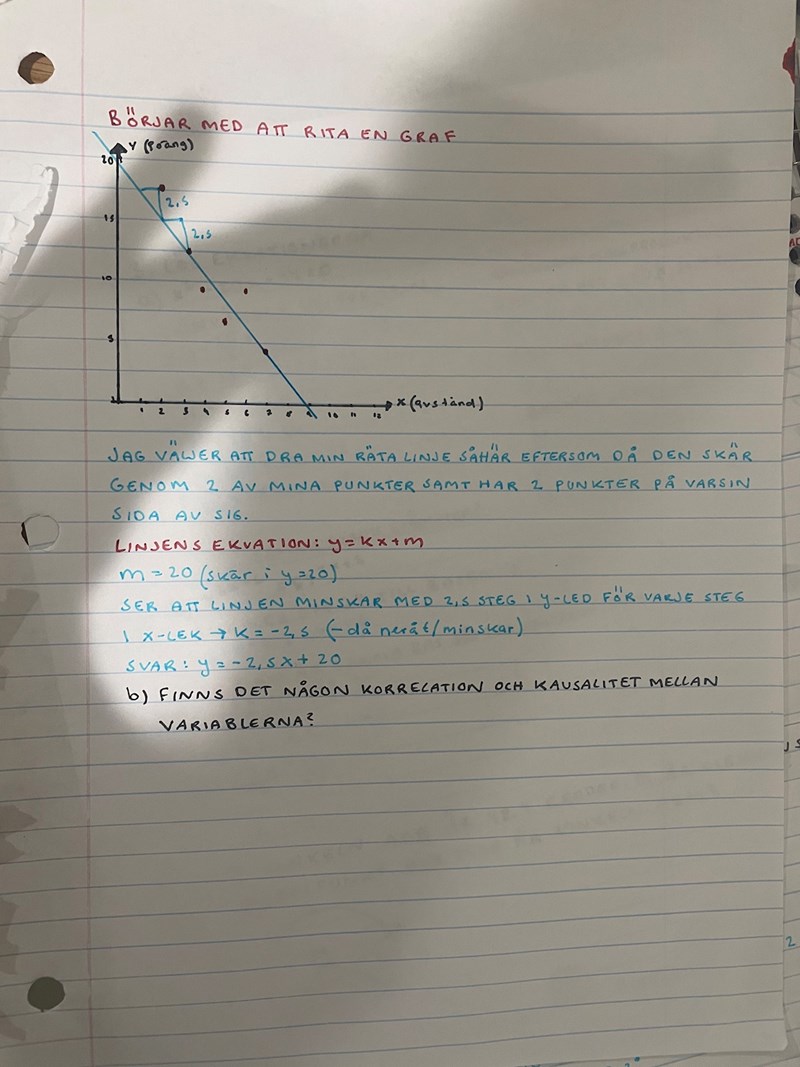 BÖRJAR MED ATT RITA EN GRAF
Y (Poäng)
20
2,5
15
2,5
10
5
1 2 3 4 5 6 7 8 9 10 11 12
X (avstånd)
JAG VÄLJER ATT DRA MIN RÄTA LINJE SÅHÄR EFTERSOM DÅ DEN SKÄR
GENOM 2 AV MINA PUNKTER SAMT HAR 2 PUNKTER PÅ VARSIN
SIDA AV SIG.
LINJENS EKVATION: y=kx+m
m=20 (skär i y=20)
SER ATT LINJEN MINSKAR MED 2,5 STEG I y-LED FÖR VARJE STEG
I X-LEK → K=-2,5 (- då neråt/minskar)
SVAR: y=-2,5x+20
b) FINNS DET NÅGON KORRELATION OCH KAUSALITET MELLAN
VARIABLERNA?
2